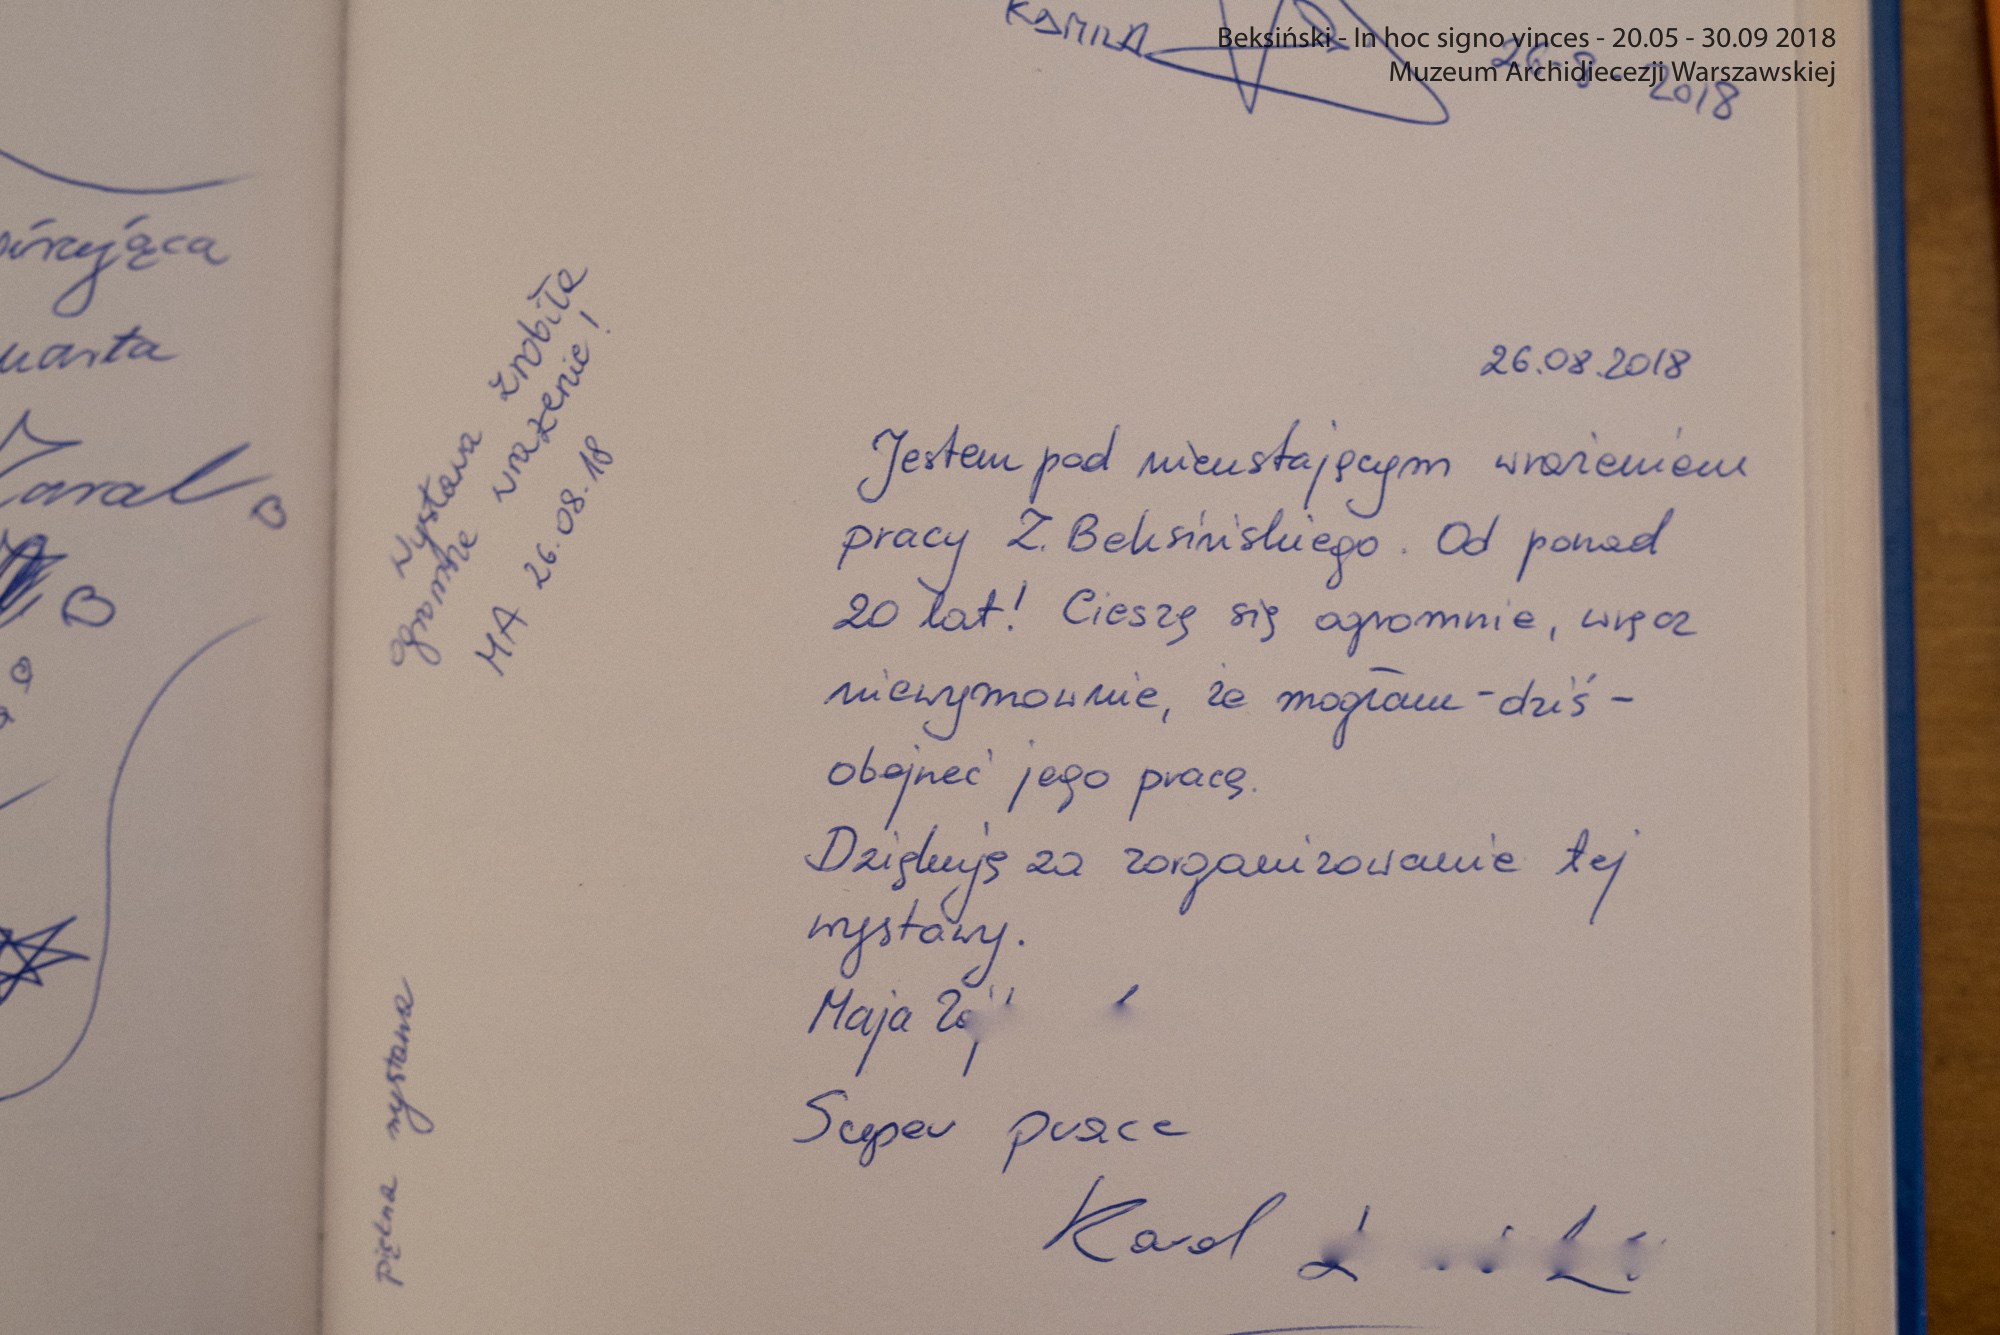 Beksiński - In hoc signo vinces - 20.05 - 30.09 2018
Muzeum Archidiecezji Warszawskiej
26-8-2018
Wystawa zrobiła
ogromne wrażenie!
MA 26.08.18
Piękna wystawa
26.08.2018
Jestem pod nieustającym wrażeniem
pracy Z. Beksińskiego. Od ponad
20 lat! Cieszę się ogromnie, wręcz
niewymownie, że mogłam - dziś -
obejrzeć jego pracę.
Dziękuję za zorganizowanie tej
wystawy.
Maja
Super prace
Karol